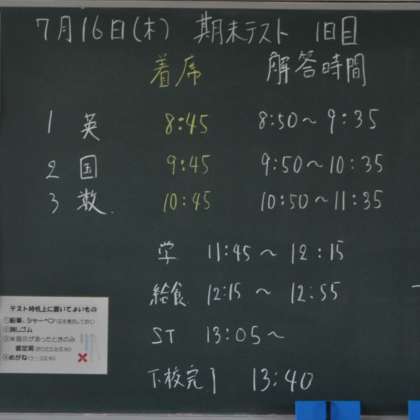 7月16日(木) 期末テスト 1日目
着席 解答時間
1 英 8:45 8:50〜9:35
2 国 9:45 9:50〜10:35
3 数. 10:45 10:50〜11:35
学 11:45〜12:15
給食 12:15〜12:55
ST 13:05〜
下校完了 13:40
テスト時机上に置いてよいもの
①鉛筆、シャーペン
②消しゴム
③
④めがね